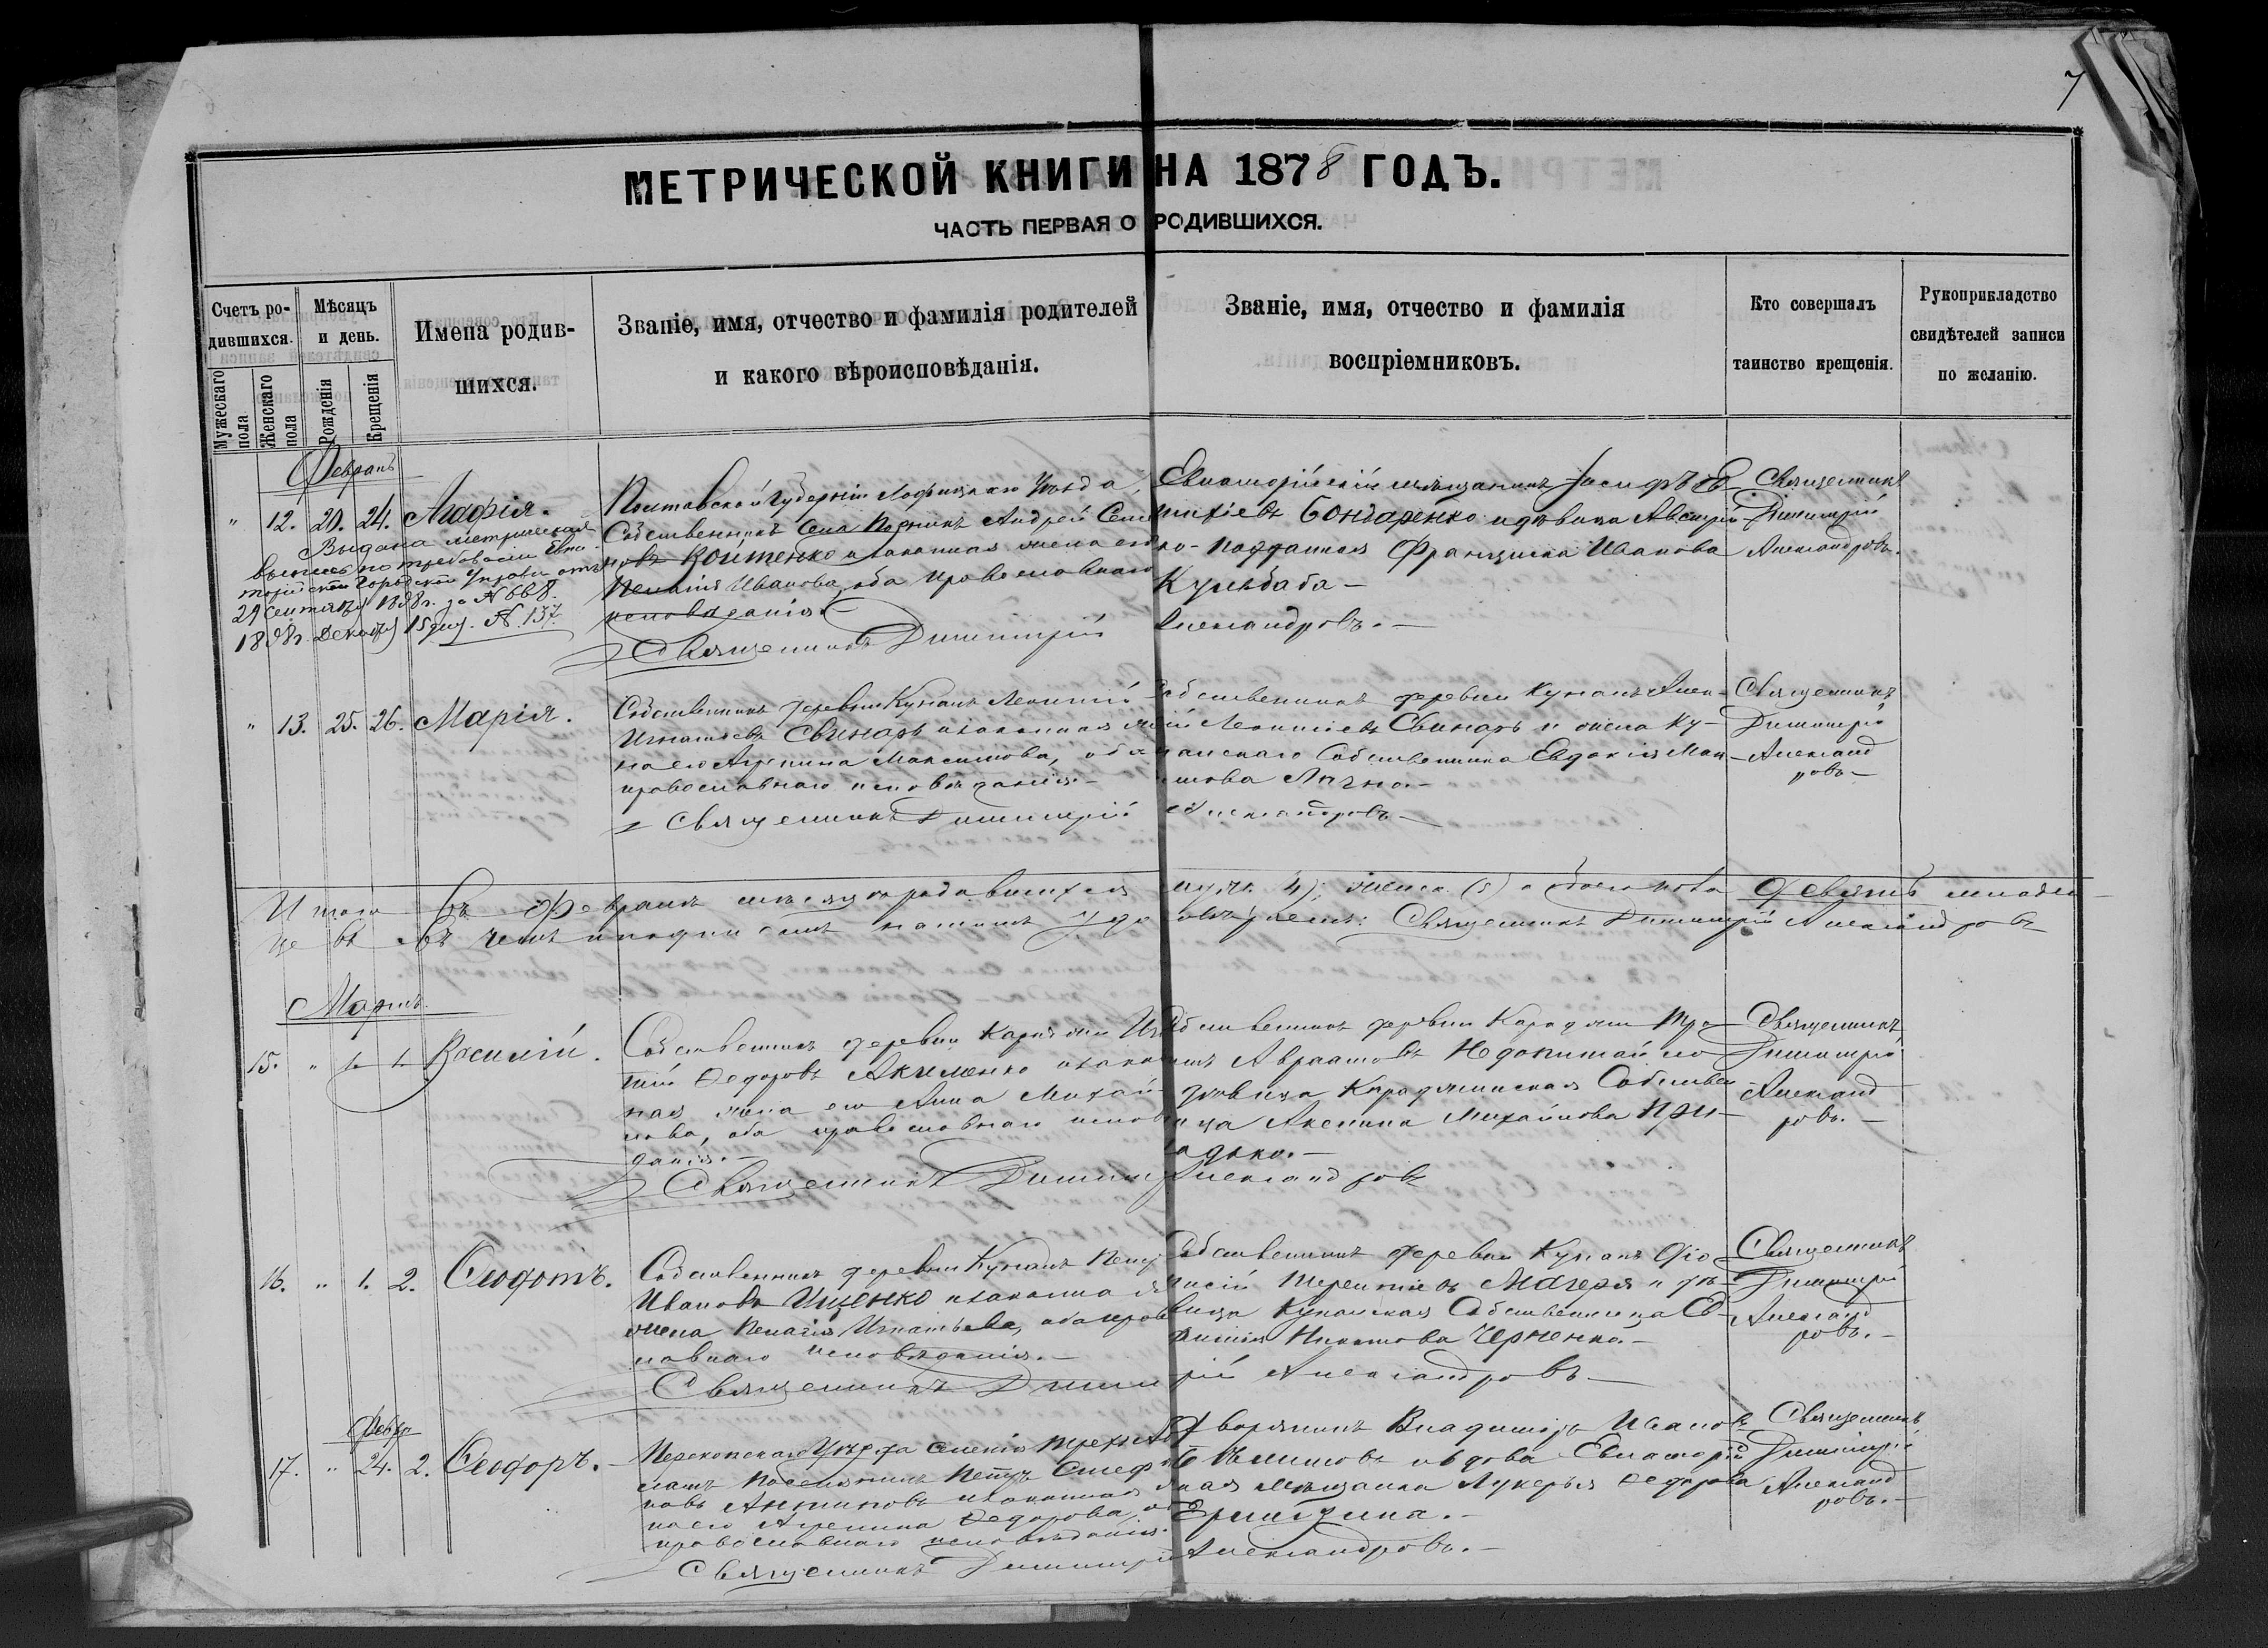 7
МЕТРИЧЕСКОЙ КНИГИ НА 1878 ГОДЪ.
ЧАСТЬ ПЕРВАЯ О РОДИВШИХСЯ.
Счетъ ро-
дившихся.
Мужескаго пола
Женскаго пола
Мѣсяцъ
и день.
Рожденія
Крещенія
Имена родив-
шихся.
Званіе, имя, отчество и фамилія родителей
и какого вѣроисповѣданія.
Званіе, имя, отчество и фамилія
воспріемниковъ.
Кто совершалъ
таинство крещенія.
Рукоприкладство
свидѣтелей записи
по желанію.
Февраль
" 12. 20. 24. Агафія.
Выдана метрическая
выпись по требованію Евпа-
торійской Городской Управы отъ
29 Сентября 1898 г. за № 668.
1898 г. Декабря 15 дня. № 137
Полтавской Губерніи Лофицкаго Уѣзда,
Собственникъ Села Андрей Семе
новъ Войтенко и законная жена его
Пелагія Иванова, оба православнаго
исповѣданія.
Священникъ Димитрій Александровъ.
Евпаторійскій мѣщанинъ Іосифъ Ев
тихіевъ Бондаренко и дѣвица Австрій
ско-подданная Франциска Иванова
Кульбаба
Священникъ
Димитрій
Александровъ.
" 13. 25. 26. Марія.
Собственникъ деревни Кунанъ Леонтій
Игнатьевъ Свинарь и законная же
на его Агрипина Максимова, оба
православнаго исповѣданія.
Священникъ Димитрій Александровъ
Собственникъ деревни Кунанъ Алек
сѣй Леонтіевъ Свинарь и жена Ку-
нанскаго Собственника Евдокія
Священникъ
Димитрій
Александ
ровъ
Итого въ Февралѣ мѣсяцѣ родившихся муж. (4); женск. (5) а обоего пола девять младен
цевъ въ чемъ и подписомъ нашимъ удостовѣряемъ: Священникъ Димитрій Александровъ
Мартъ.
15. " 1. 1. Василій.
Собственникъ деревни Караджи Игна
тій Ѳедоровъ Акименко и закон
ная жена его Анна Михай
лова, оба православнаго исповѣ
данія.
Священникъ Димитрій Александровъ
Собственникъ деревни Караджи Тро
фимъ Авраамовъ Недопитайло
дѣвица Караджинская Собствен
ница Аксинья Михайлова При
адько.
Священникъ
Димитрій
Александ
ровъ.
16. " 1. 2. Ѳеодотъ.
Собственникъ деревни Кунанъ Петръ
Ивановъ Ищенко и законная
жена Пелагія Игнатьева, оба право
славнаго исповѣданія.
Священникъ Димитрій Александровъ
Собственникъ деревни Кунанъ Діо
нисій Терентіевъ Мачеря и дѣ-
вица Кунанская Собственница Ев-
фимія Черненко.
Священникъ
Димитрій
Александ
ровъ.
Февр
17. " 24. 2. Ѳеодоръ.
Перекопскаго Уѣзда селенія
Поселянинъ Петръ Стефа
новъ Антиповъ и законная же
на его Агрипина Ѳедорова, оба
православнаго исповѣданія.
Священникъ Димитрій Александровъ.
Дворянинъ Владиміръ Ивановъ
вдова Евпаторій
ская мѣщанка Лукерья Ѳедорова
Священникъ
Димитрій
Александ
ровъ.